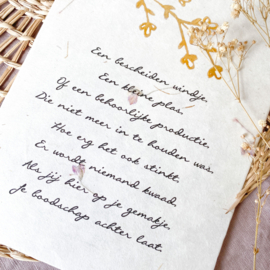 Een bescheiden windje.
Een kleine plas.
Of een behoorlijke productie.
Die niet meer in te houden was.
Hoe erg het ook stinkt.
Er wordt niemand kwaad.
Als jij hier op je gemakje.
Je boodschap achter laat.